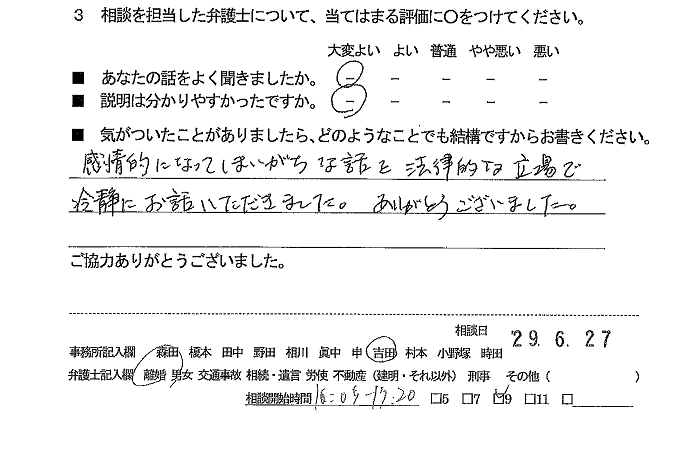 3 相談を担当した弁護士について、当てはまる評価に〇をつけてください。
大変よい よい 普通 やや悪い 悪い
■ あなたの話をよく聞きましたか。 － － － － －
■ 説明は分かりやすかったですか。 － － － － －
■ 気がついたことがありましたら、どのようなことでも結構ですからお書きください。
感情的になってしまいがちな話を法律的な立場で
冷静にお話いただきました。ありがとうございました。
ご協力ありがとうございました。
相談日 29.6.27
事務所記入欄 森田 榎本 田中 野田 相川 眞中 申 吉田 村本 小野塚 時田
弁護士記入欄 離婚 男女 交通事故 相続・遺言 労使 不動産（建明・それ以外） 刑事 その他（ ）
相談開始時間 16:05-17:20 □5 □7 ☑9 □11 □